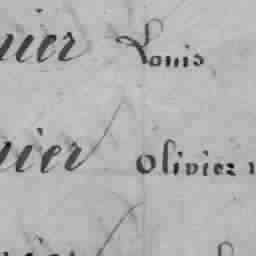 nier Louis
nier Olivier